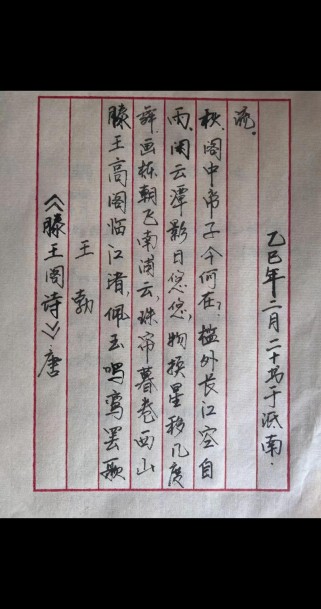 《滕王阁诗》唐
王勃
滕王高阁临江渚,佩玉鸣鸾罢歌
舞,画栋朝飞南浦云,珠帘暮卷西山
雨,闲云潭影日悠悠,物换星移几度
秋,阁中帝子今何在,槛外长江空自
流。
乙巳年二月二十书于南.